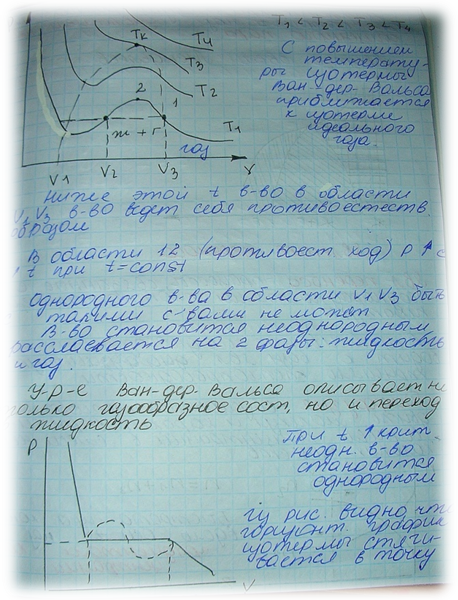 T1 < T2 < T3 < T4
Tк
T4
T3
T2
2
1
ж + г
T1
газ
V1
V2
V3
V
С повышением
температу-
ры изотермы
Ван-дер-Вальса
приближается
к изотерме
идеального
газа.
Ниже этой t в-во в области
V1 V3 в-во ведт себя противоестеств
образом
В области 12 (противоест. ход) P ↑ с
t при t=const
однородного в-ва в области V1 V3 быть
такими с-вами не может
В-во становится неоднородным
расслаевается на 2 фазы: жидкость
и газ.
У-р-е Ван-дер-Вальса описывает не
только газообразное сост, но и переход
жидкость
P
При t ↑ крит
неодн. в-во
становится
однородным
Из рис. видно что
горизонт. график
изотермы стяги-
вается в точку
V